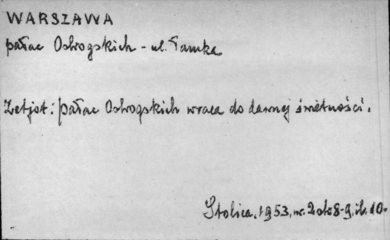 WARSZAWA
pałac Ostrogskich - ul. Tamka
Zetjot: pałac Ostrogskich wraca do dawnej świetności.
Stolica, 1953, nr. 2 str 8-9, il. 10.